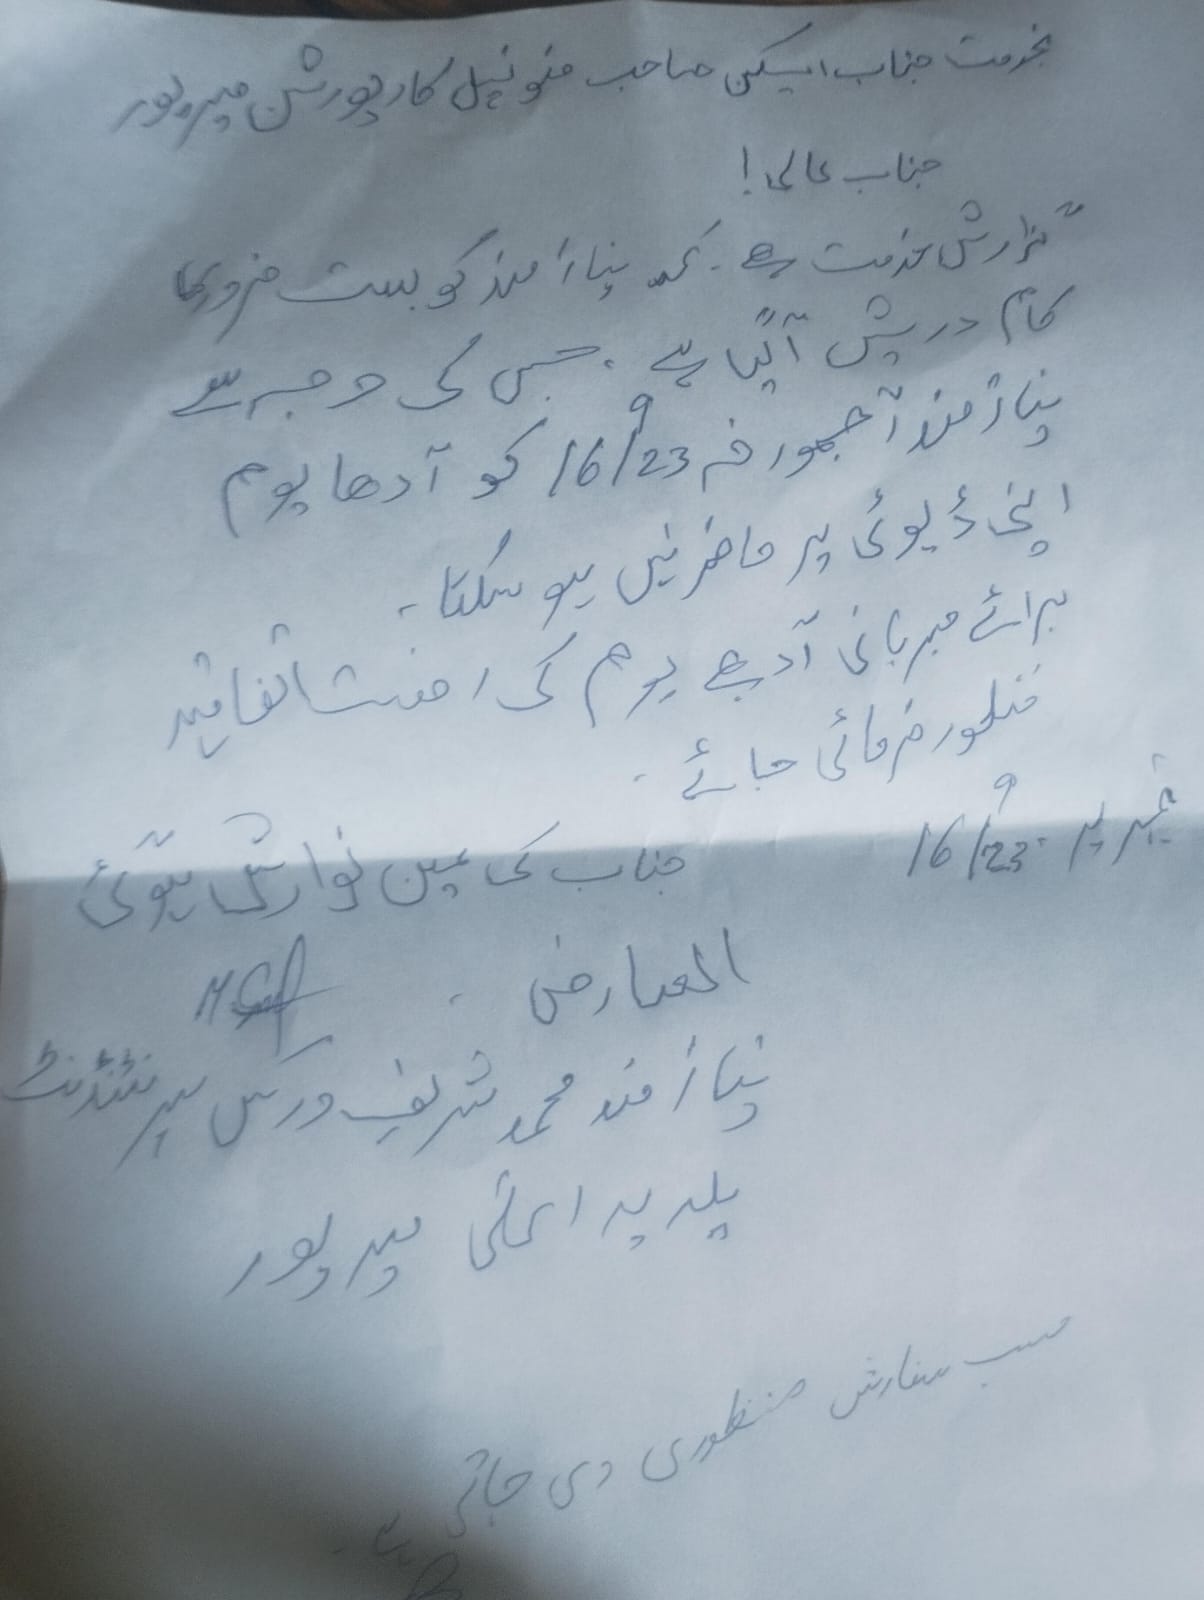 بخدمت جناب ایکسین صاحب میونسپل کارپورشن میرپور
جناب عالی!
گزارش خدمت ہے۔ کہ نیاز مند کو بہت ضروری
کام درپیش آ گیا ہے۔ جس کی وجہ سے
نیاز مند آج مورخہ 16/9/23 کو آدھا یوم
اپنی ڈیوٹی پر حاضر نہیں ہو سکتا۔
برائے مہربانی آدھے یوم کی رخصت اتفاقیہ
منظور فرمائی جائے۔
تحریر 16/9/23
جناب کی عین نوازش ہو گئی
العارض
نیاز مند محمد شریف ورکس سپرنٹنڈنٹ
بلدیہ میرپور
حسب سفارش منظوری دی جاتی ہے۔